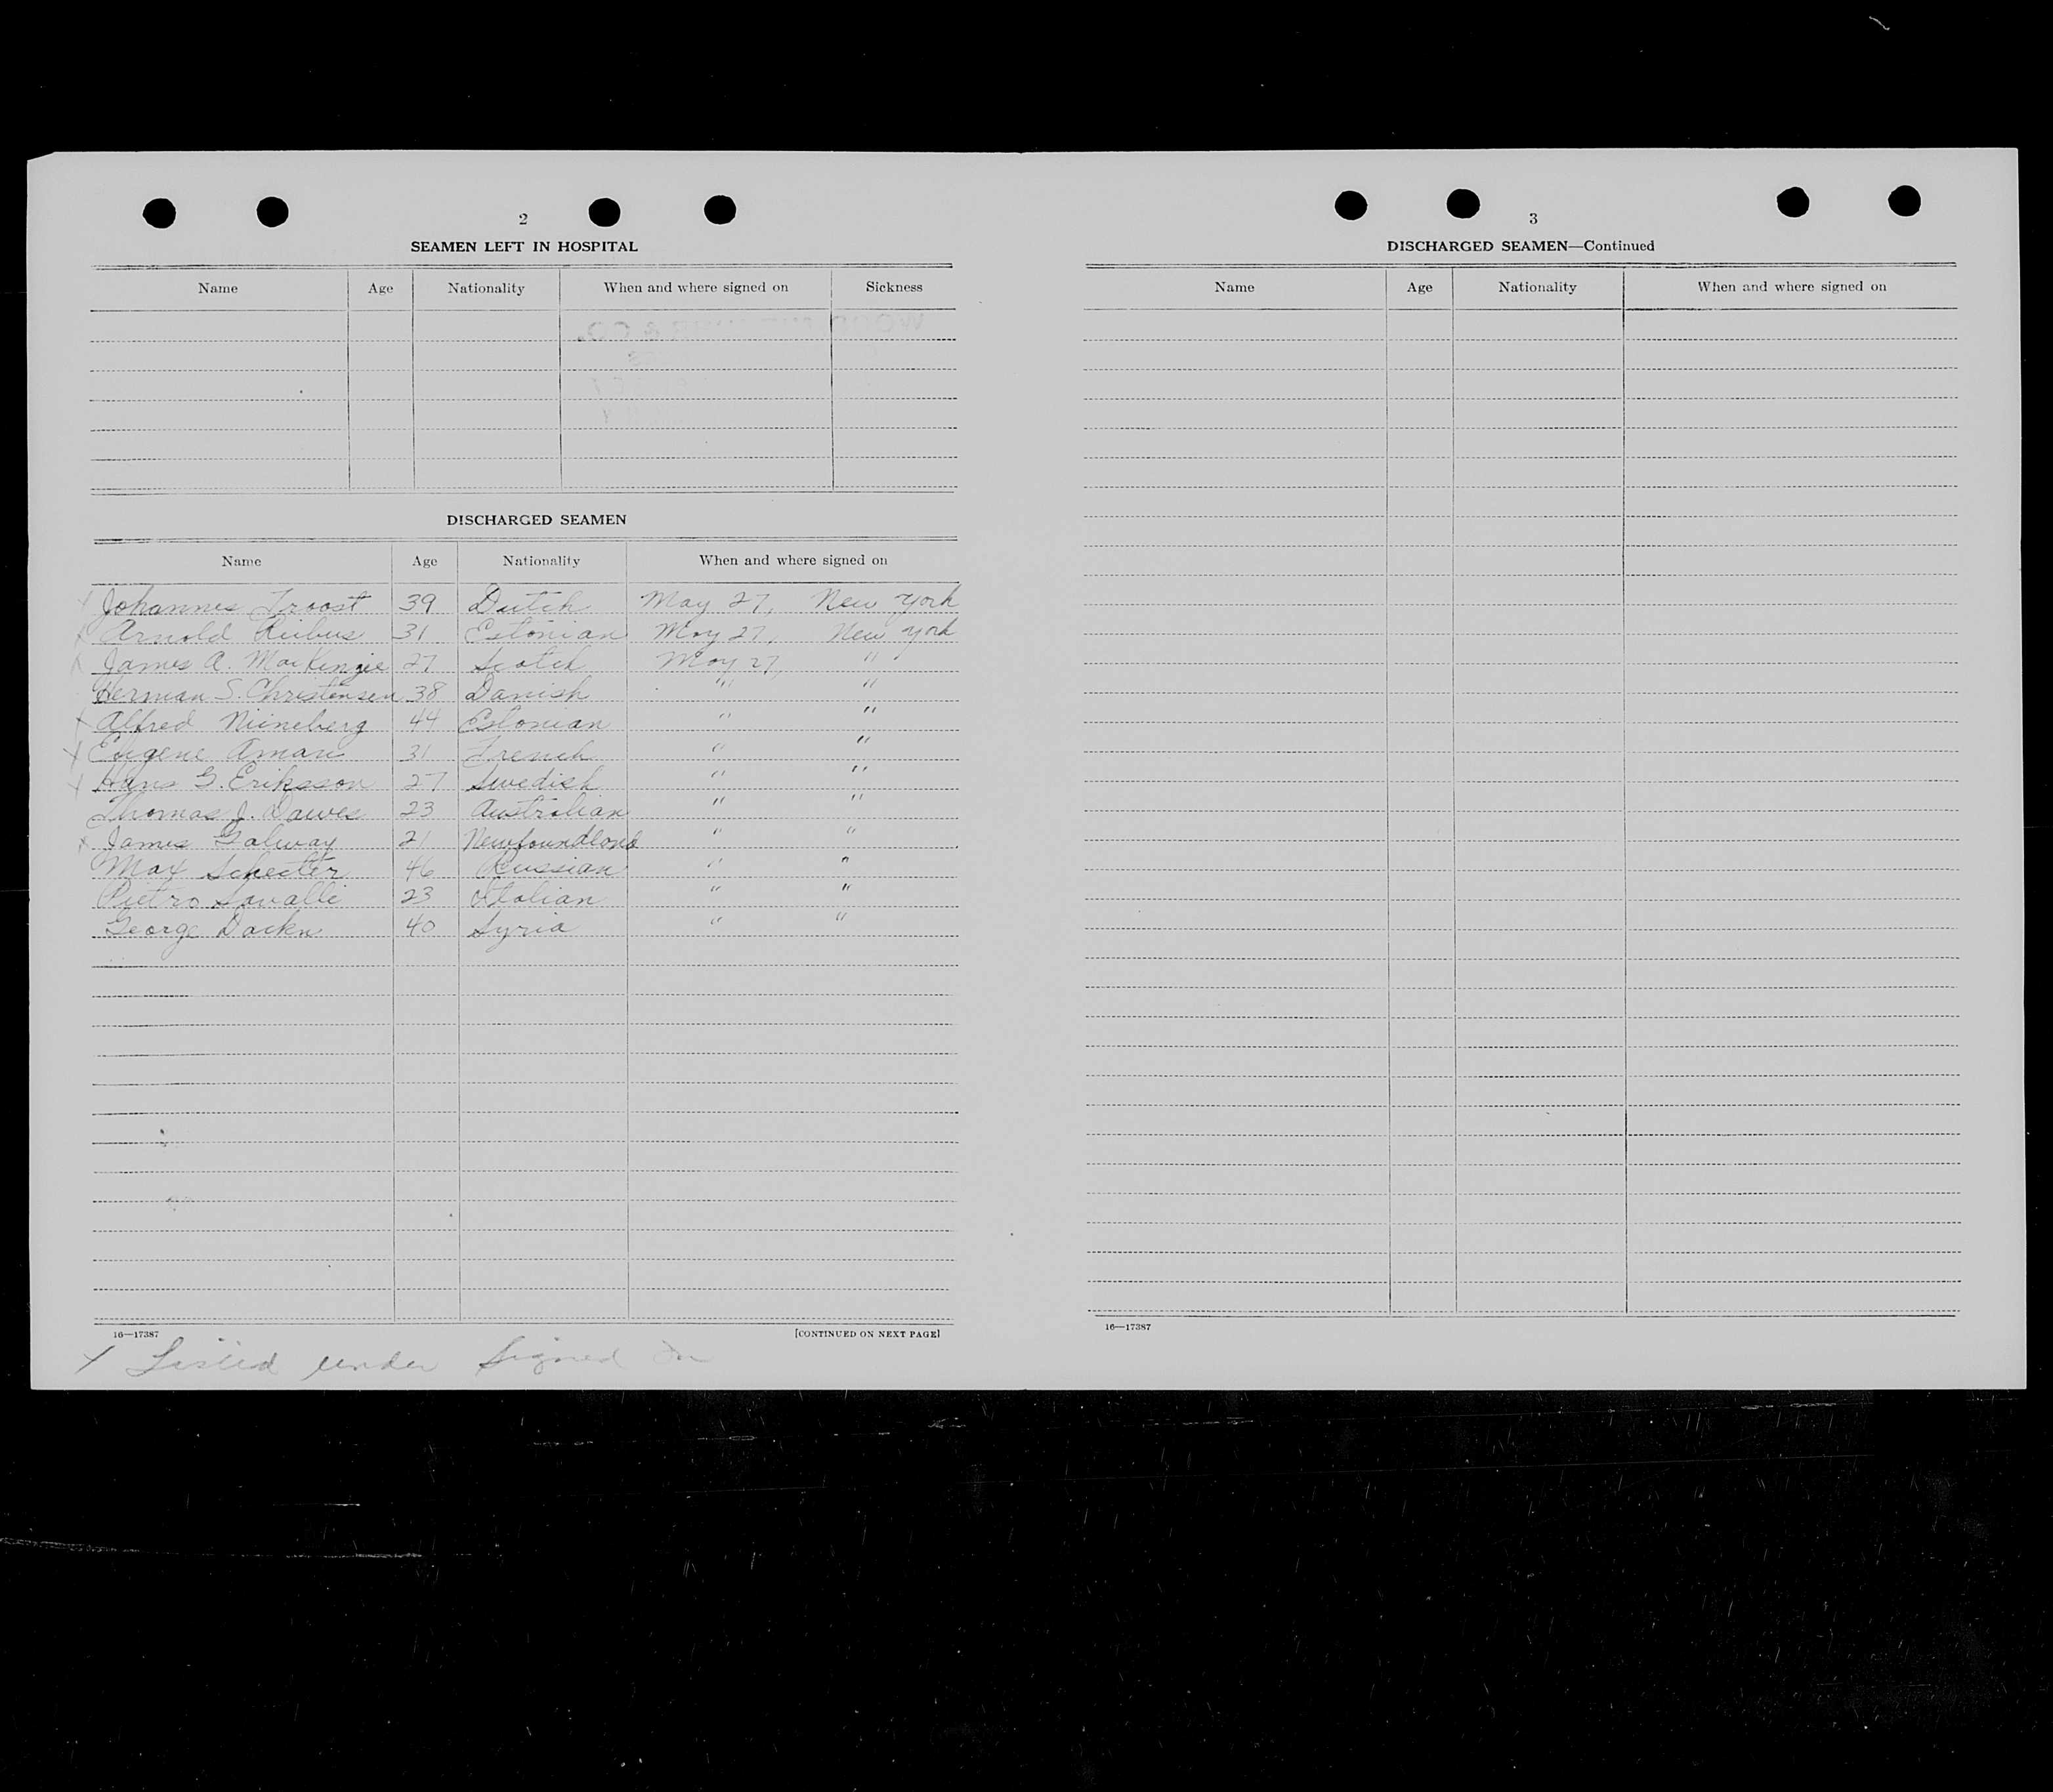 2
SEAMEN LEFT IN HOSPITAL
Name Age Nationality When and where signed on Sickness
DISCHARGED SEAMEN
Name Age Nationality When and where signed on
x Johannes Troost 39 Dutch May 27, New York
x Arnold Reibus 31 Estonian May 27, New York
x James A. MacKenzie 27 Scotch May 27, "
Herman S. Christensen 38 Danish " "
x Alfred Nüneberg 44 Estonian " "
x Eugene Aman 31 French " "
x Hans G. Eriksson 27 Swedish " "
Thomas J. Dawes 23 Australian " "
x James Galway 21 Newfoundland " "
Max Schecter 46 Russian " "
Pietro Savalli 23 Italian " "
George Dackn 40 Syria " "
16—17387 [CONTINUED ON NEXT PAGE]
x Listed under Signed On
3
DISCHARGED SEAMEN—Continued
Name Age Nationality When and where signed on
16—17387